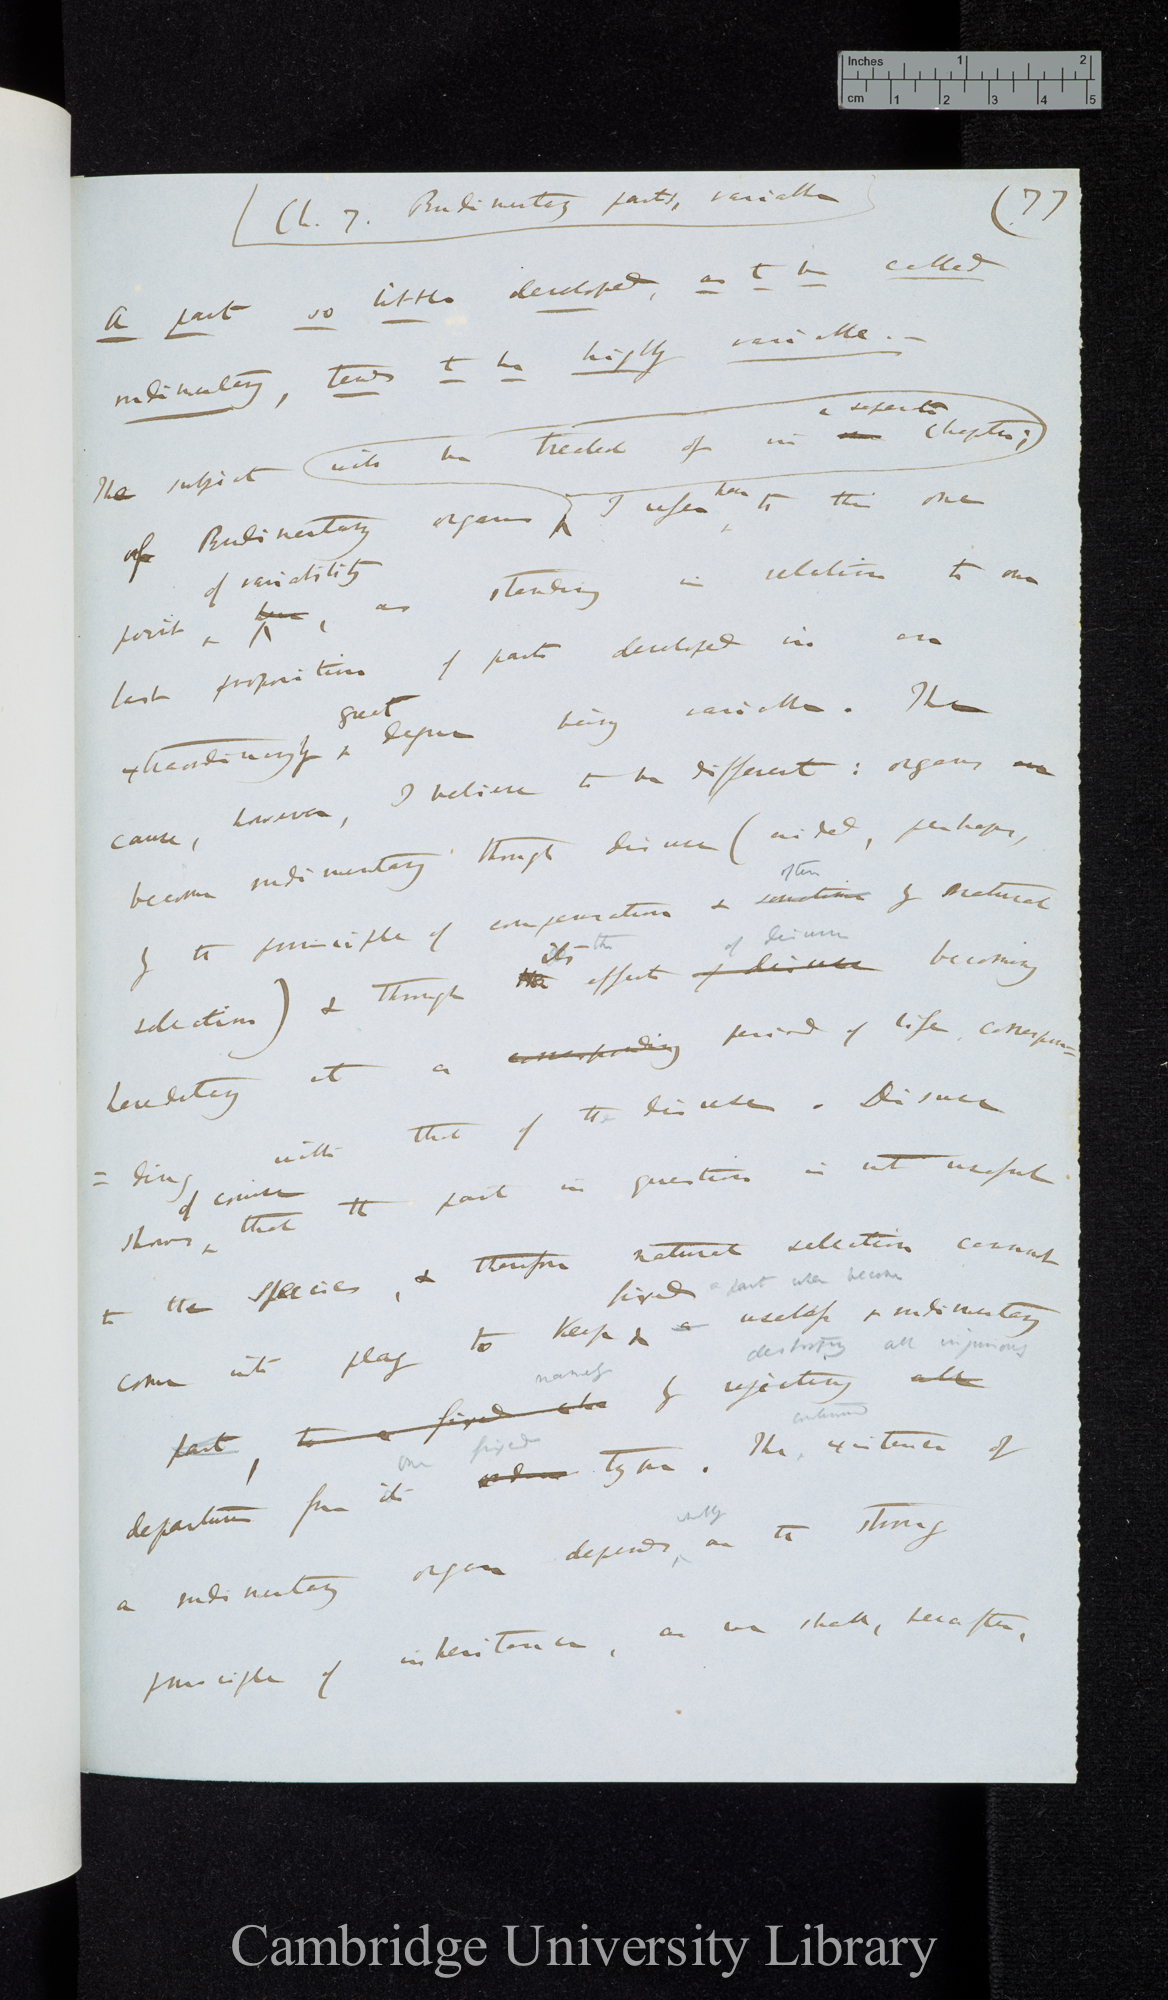 Inches 1 2
cm 1 2 3 4 5
Ch. 7. Rudimentary parts, variable
(77
A part so little developed, as to be called
rudimentary, tends to be highly variable.—
The subject will be treated of in a separate chapter;
of Rudimentary organs I refer here to this one
point & of variability, as standing in relation to our
last proposition of parts developed in an
extraordinary great degree being variable. The
cause, however, I believe to be different: organs are
become rudimentary through disuse (aided, perhaps,
by the principle of compensation & sometimes often by natural
selection) & through the its effects of disuse of disuse becoming
hereditary at a corresponding period of life, correspon=
=ding with that of the disuse. Disuse
shows, of course that the part in question is not useful
to the species, & therefore natural selection cannot
come into play to keep fixed a part when become useless & rudimentary
part, to a fixed namely by rejecting all destroying all injurious
departures from its one fixed type. The continued existence of
a rudimentary organ depends, on the strong
principle of inheritance, as we shall, hereafter,
Cambridge University Library